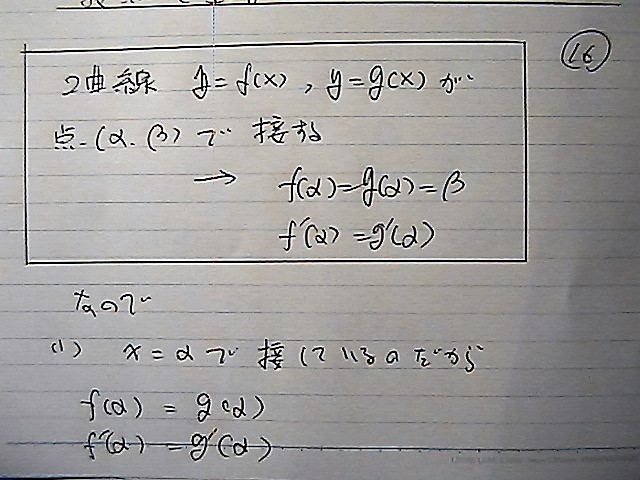 16
2曲線 y=f(x), y=g(x)が
点(α, β)で接する
→ f(α)=g(α)=β
f'(α)=g'(α)
なので
(1) x=αで接しているのだから
f(α)=g(α)
f'(α)=g'(α)